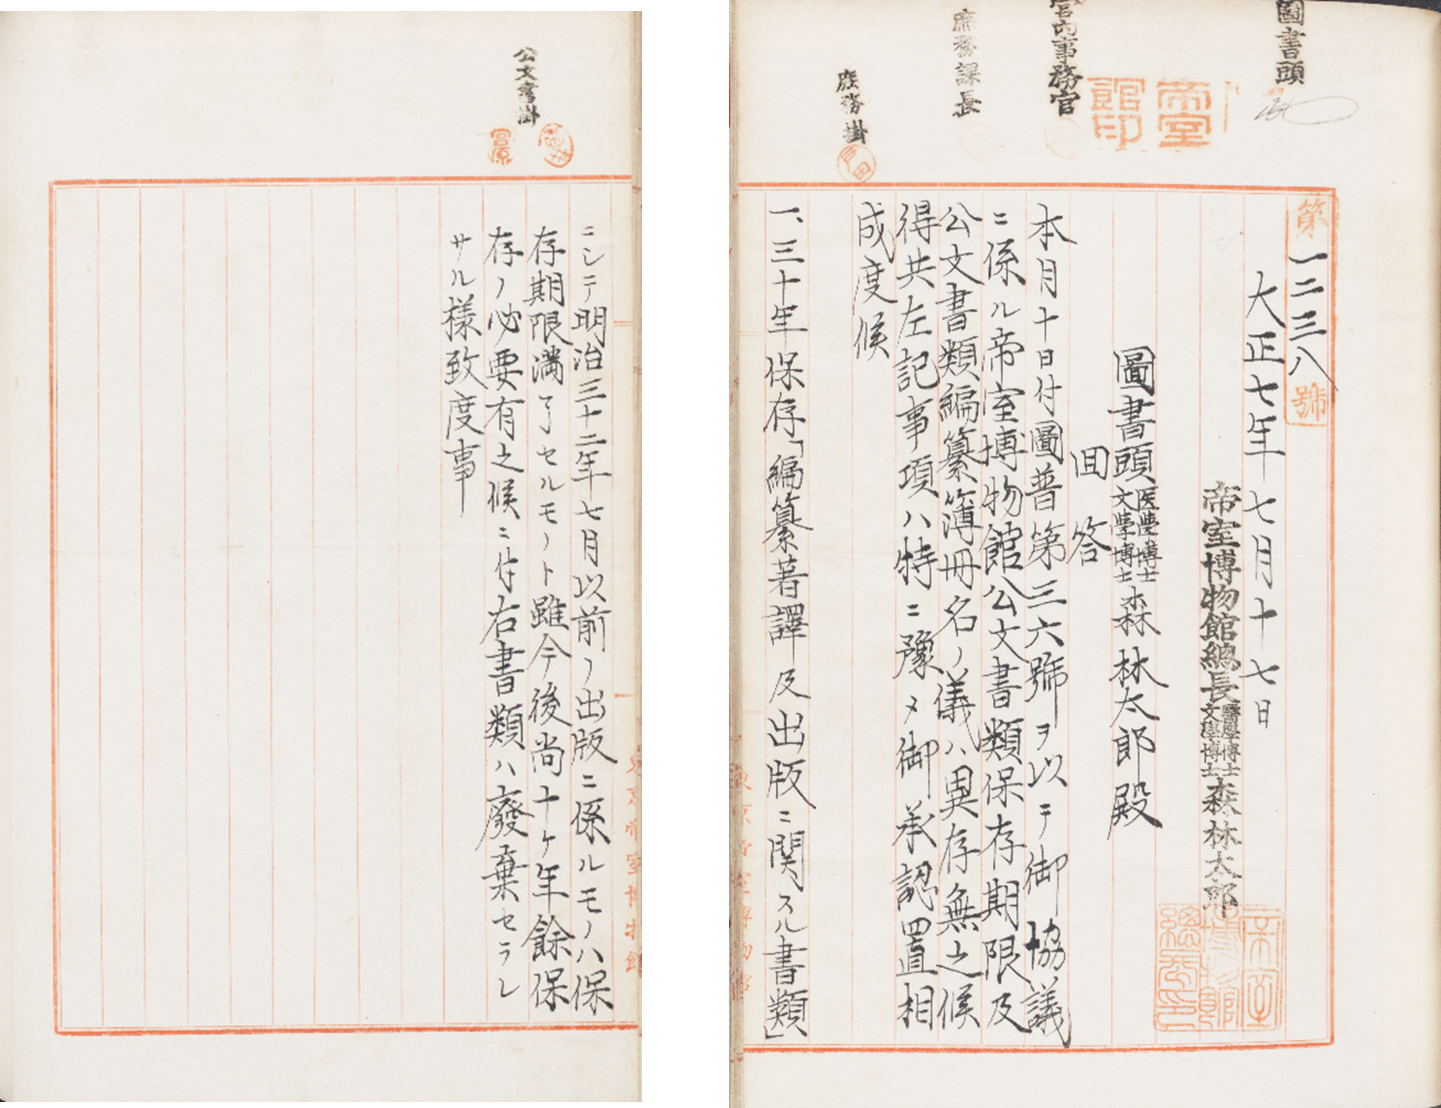 圖書頭
宮内事務官
庶務課長
庶務掛
帝室
館印
第一二三八號
大正七年七月十七日
帝室博物館總長醫學博士文學博士森林太郎
圖書頭医學博士文學博士森林太郎殿
回答
本月十日付圖普第三六號ヲ以テ御協議
ニ係ル帝室博物館公文書類保存期限及
公文書類編纂簿冊名ノ儀ハ異存無之候
得共左記事項ハ特ニ豫メ御承認置相
成度候
一、三十年保存「編纂著譯及出版ニ関スル書類」
東京帝室博物館
公文書掛
ニシテ明治三十二年七月以前ノ出版ニ係ルモノハ保
存期限満了セルモノト雖今後尚十ケ年餘保
存ノ必要有之候ニ付右書類ハ廢棄セラレ
サル様致度事
東京帝室博物館